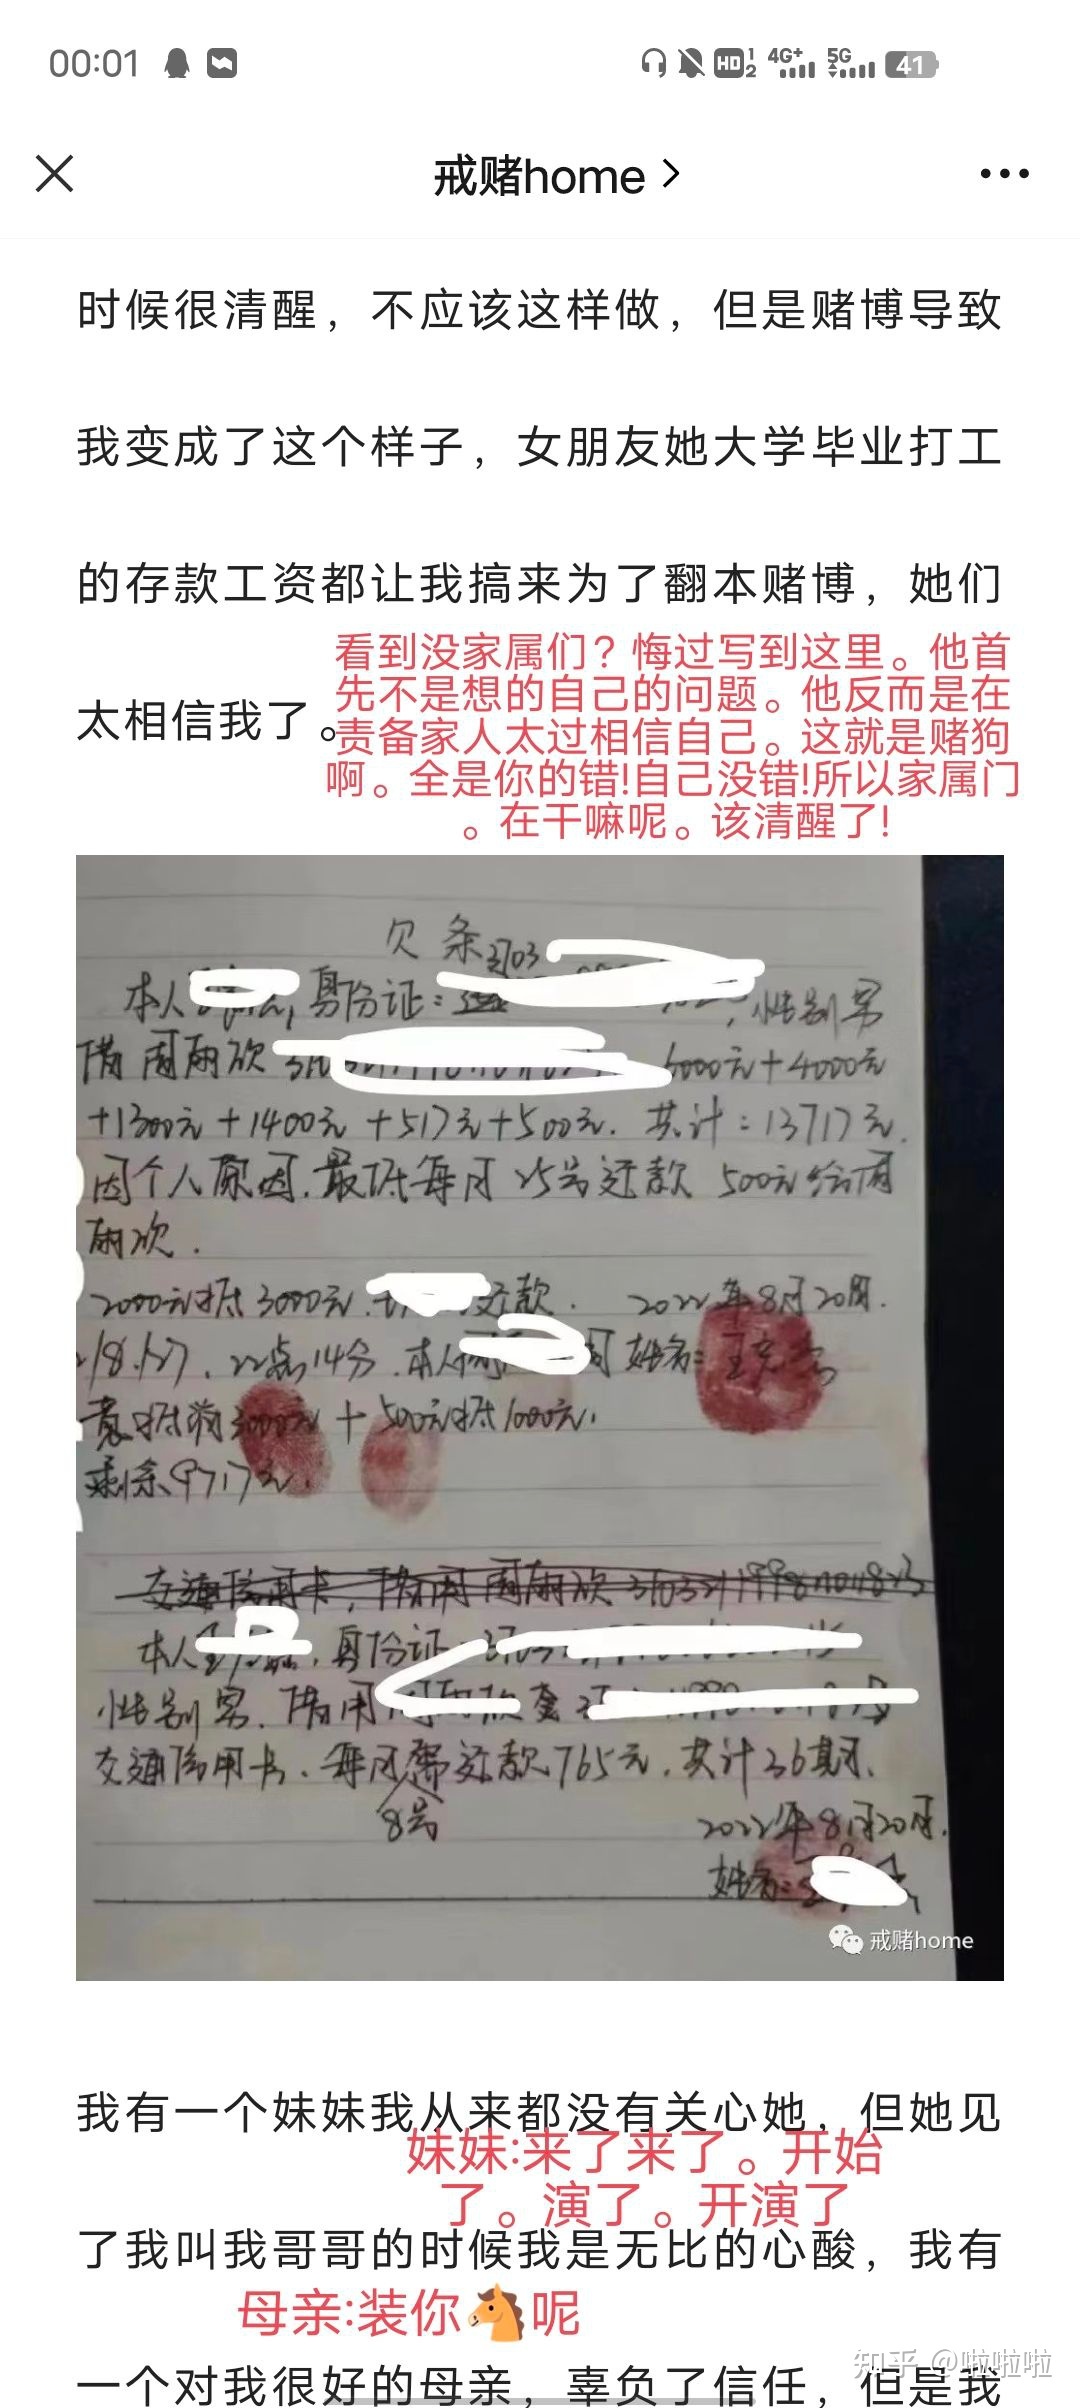 00:01
HD 1 2 4G+ 5G 41
戒赌home
时候很清醒，不应该这样做，但是赌博导致
我变成了这个样子，女朋友她大学毕业打工
的存款工资都让我搞来为了翻本赌博，她们
太相信我了。
看到没家属们？悔过写到这里。他首
先不是想的自己的问题。他反而是在
责备家人太过相信自己。这就是赌狗
啊。全是你的错!自己没错!所以家属门
。在干嘛呢。该清醒了!
欠条
本人 身份证： 性别男
借周雨欣 4000元
+1300元+1400元+517元+500元. 共计：13717元.
因个人原因.最低每月25号还款 500元给周
雨欣.
2000元抵3000元. 还款. 2022年8月20日.
22点14分.本人 姓名：
3000元+500元抵1000元.
剩余9717元.
本人 身份证
性别男.借用
交通信用卡.每月需还款765元.共计36期.
8号
2022年8月20日.
姓名：
戒赌home
我有一个妹妹我从来都没有关心她，但她见
妹妹:来了来了。开始
了。演了。开演了
了我叫我哥哥的时候我是无比的心酸，我有
母亲:装你🐴呢
一个对我很好的母亲，辜负了信任，但是我
知乎 @啦啦啦